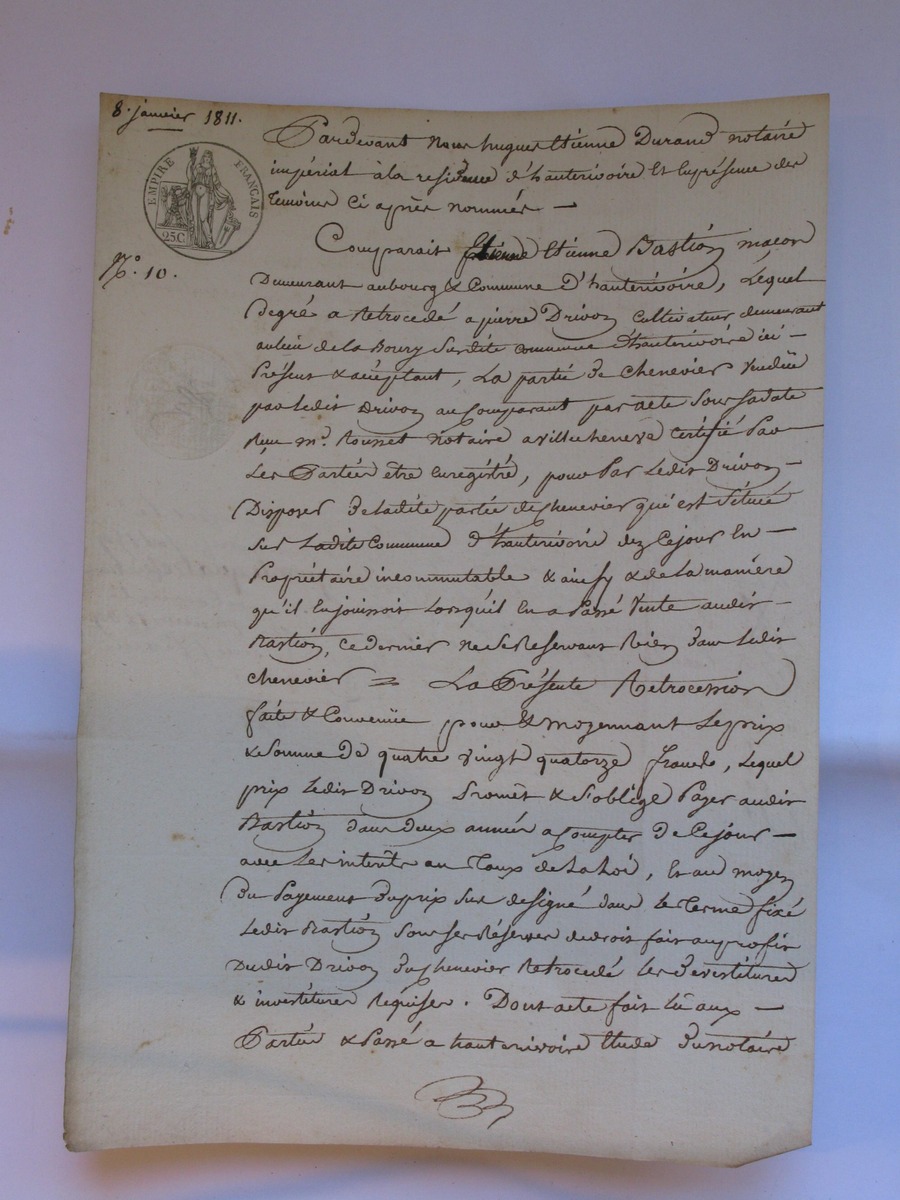 8. janvier 1811.
EMPIRE FRANÇAIS
25C.
N.° 10.
Pardevant Nous hugues Etienne Durand notaire
impérial à la residence d'hauterivoire Et Enprésence des
Temoins Ci après nommés —
Comparait Etienne Bastion maçon
Demeurant aubourg & Commune D'hauterivoire, Lequel
Degré a Retrocedé a pierre Drivon Cultivateur demeurant
aulieu de la Boury Surdite commune d'hauterivoire ici —
Présent & acceptant, La partie de Chenevier Vendüe
par ledit Drivon au Comparant par acte Sous sa date
Reçu m.e Rousset Notaire a villecheneve Certifié Par
Les Parties etre Enregistré, pour Par Ledit Drivon —
Disposer de ladite partie de Chenevier qui est Située
Sur Ladite Commune d'hauterivoire dez Cejour En —
Propriétaire incommutable & ainsy & de la manière
qu'il Enjouissoit Lorsquil En a Passé Vente audit —
Bastion, ce dernier ne se Réservant Rien dans Ledit
Chenevier = La Présente Retrocession
faite & Convenüe pour & moyennant Leprix
& Somme de quatre vingt quatorze francs, Lequel
prix Ledit Drivon Promet & S'oblige Payer audit
Bastion dans deux années a Compter de Cejour —
avec Les intérêts au Taux de la Loi, Et au moyen
Du Payement Duprix Sus designé dans le Terme fixé
Ledit Bastion Sous ses Réserves de droit fait au profit
Dudit Drivon Du Chenevier Retrocedé les Devestitures
& investitures Requises. Dont acte fait Lû aux —
Parties & Passé a hauterivoire Etude Du notaire